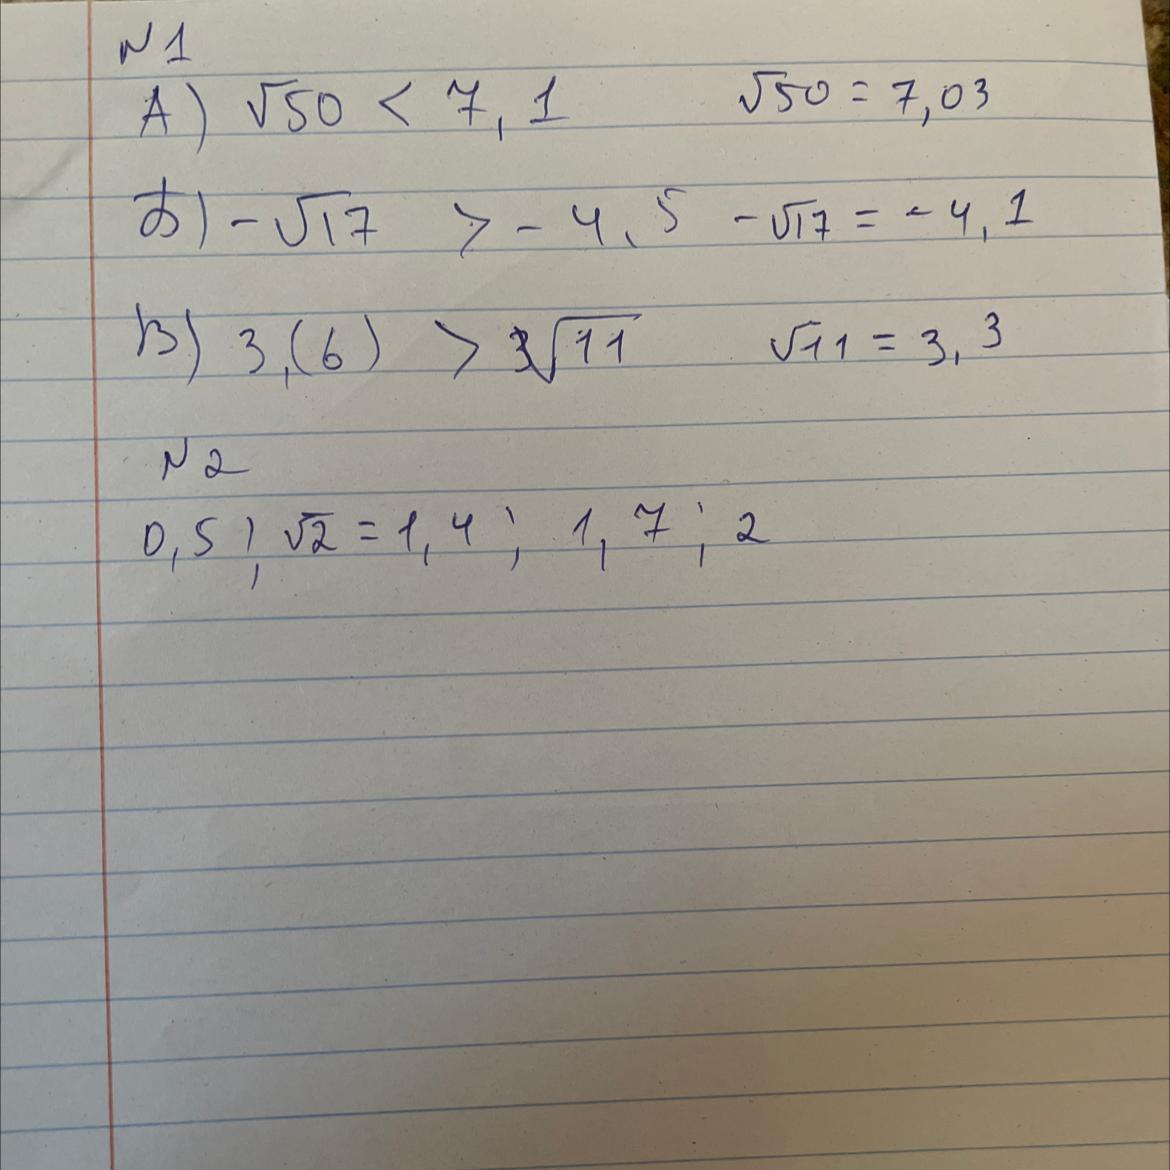 N 1
А) √50 < 7,1 √50 = 7,03
Б) -√17 > -4,5 -√17 = -4,1
В) 3,(6) > √11 √11 = 3,3
N 2
0,5; √2 = 1,4; 1,7; 2